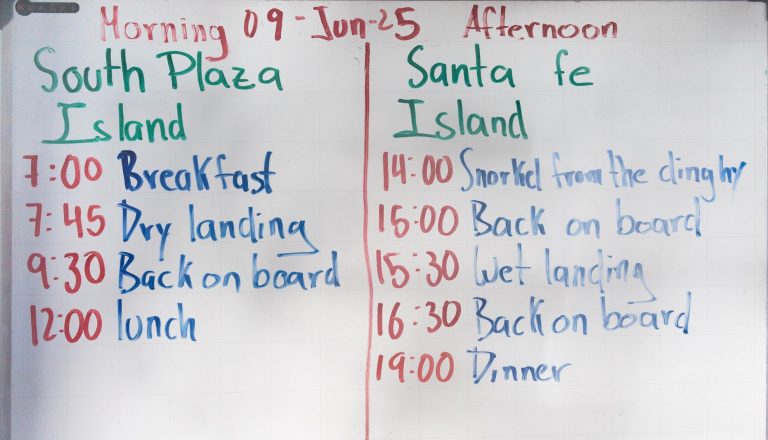 Morning 09-Jun-25 Afternoon
South Plaza
Island
7:00 Breakfast
7:45 Dry landing
9:30 Back on board
12:00 lunch
Santa fe
Island
14:00 Snorkel from the dinghy
15:00 Back on board
15:30 Wet landing
16:30 Back on board
19:00 Dinner